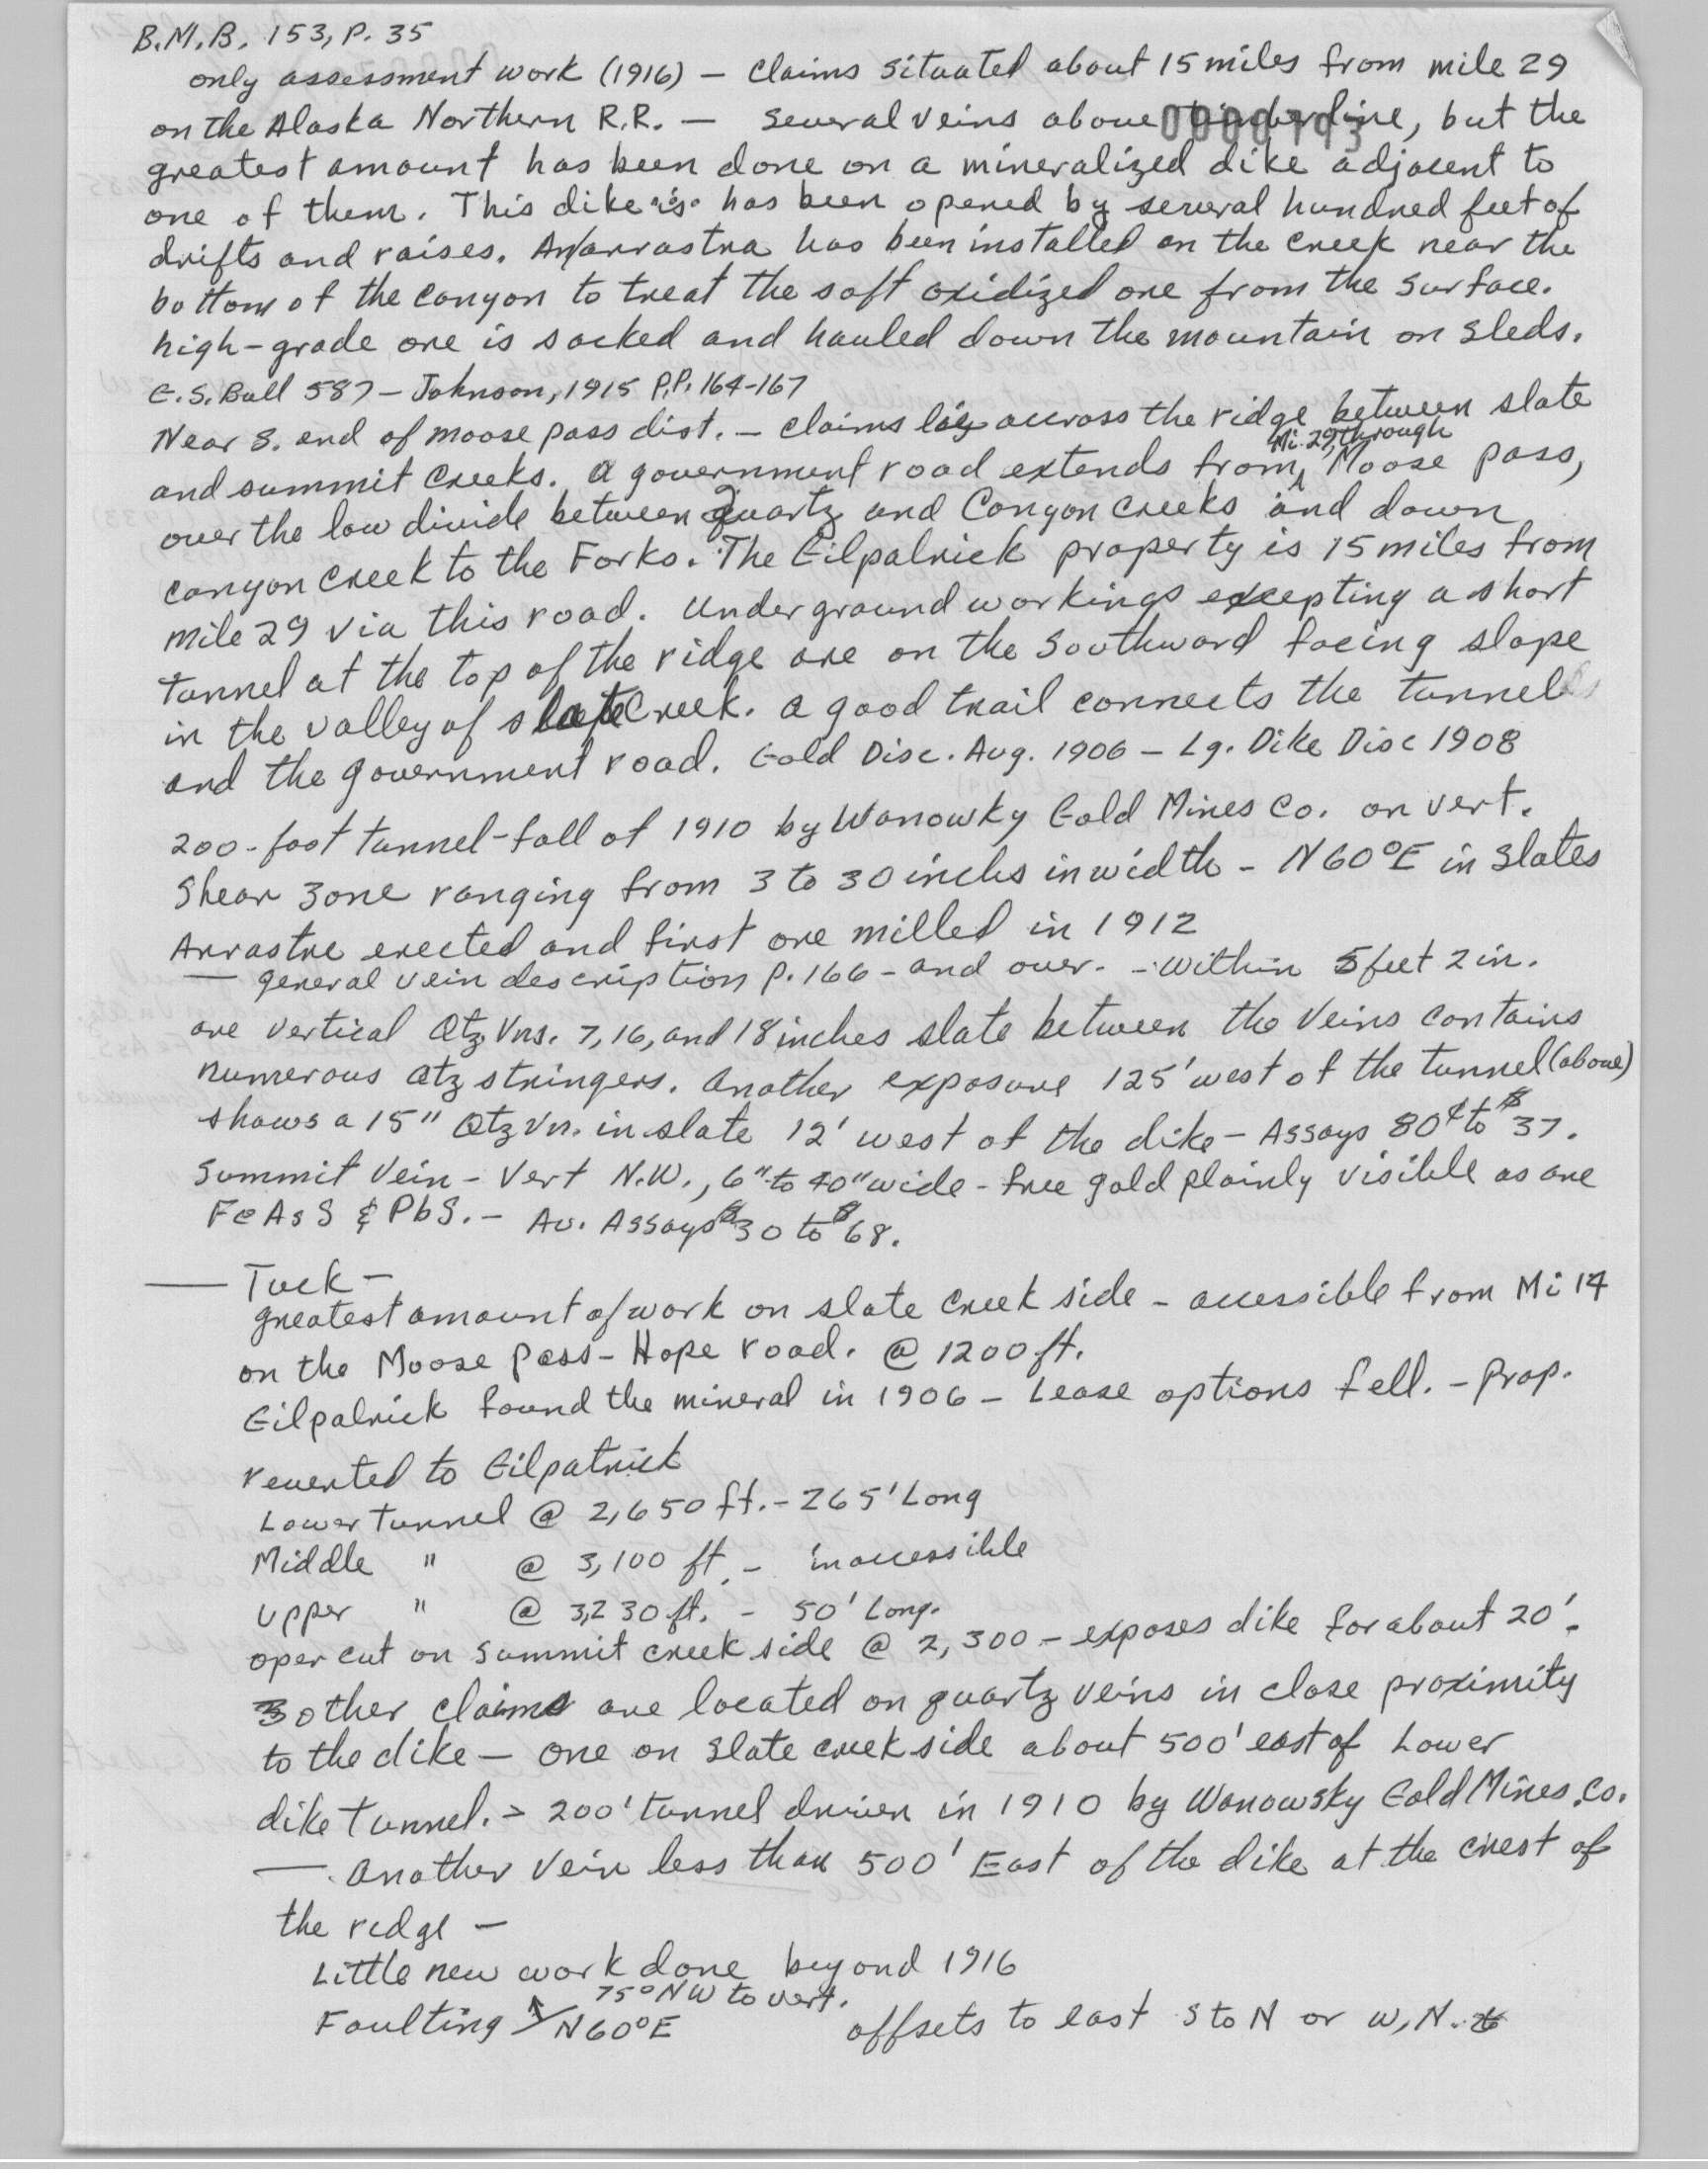 B.M.B. 153, P. 35
only assessment work (1916) – Claims situated about 15 miles from mile 29
on the Alaska Northern R.R. – Several veins above timberline, but the
greatest amount has been done on a mineralized dike adjacent to
one of them. This dike is has been opened by several hundred feet of
drifts and raises. An arrastra has been installed on the creek near the
bottom of the canyon to treat the soft oxidized ore from the surface.
high-grade ore is sacked and hauled down the mountain on sleds.
G.S. Bull 587 – Johnson, 1915 P.P. 164-167
Near S. end of moose pass dist. – claims lay across the ridge between slate
Mi. 29, through
and summit Creeks. A government road extends from Moose pass,
over the low divide between Quartz and Canyon Creeks and down
canyon creek to the Forks. The Gilpatrick property is 15 miles from
mile 29 via this road. Underground workings excepting a short
tunnel at the top of the ridge are on the Southward facing slope
in the valley of slate Creek. A good trail connects the tunnels
and the government road. Gold Disc. Aug. 1906 – Lg. Dike Disc 1908
200-foot tunnel-fall of 1910 by Wanowky Gold Mines Co. on vert.
Shear zone ranging from 3 to 30 inches in width – N60°E in slates
Arrastre erected and first ore milled in 1912
— general vein description p. 166 – and over. – within 5 feet 2 in.
are vertical Qtz Vns. 7, 16, and 18 inches slate between the veins contains
numerous qtz stringers. Another exposure 125' west of the tunnel (above)
shows a 15" Qtz Vn. in slate 12' west of the dike – Assays 80¢ to $37.
Summit Vein – Vert N.W., 6" to 40" wide – free gold plainly visible as are
FeAsS & PbS. – Av. Assays $30 to $68.
— Tuck –
greatest amount of work on slate creek side – accessible from Mi 14
on the Moose Pass-Hope road. @ 1200 ft.
Gilpatrick found the mineral in 1906 – Lease options fell. – Prop.
reverted to Gilpatrick
Lower tunnel @ 2,650 ft. – 265' Long
Middle " @ 3,100 ft. – inaccessible
Upper " @ 3,230 ft. – 50' Long.
open cut on Summit creek side @ 2,300 – exposes dike for about 20'.
3 other claims are located on quartz veins in close proximity
to the dike – one on slate creek side about 500' east of Lower
dike tunnel. > 200' tunnel driven in 1910 by Wanowsky Gold Mines Co.
— Another Vein less than 500' East of the dike at the crest of
the ridge –
Little new work done beyond 1916
75° NW to vert.
Faulting N60°E offsets to east S to N or W, N.